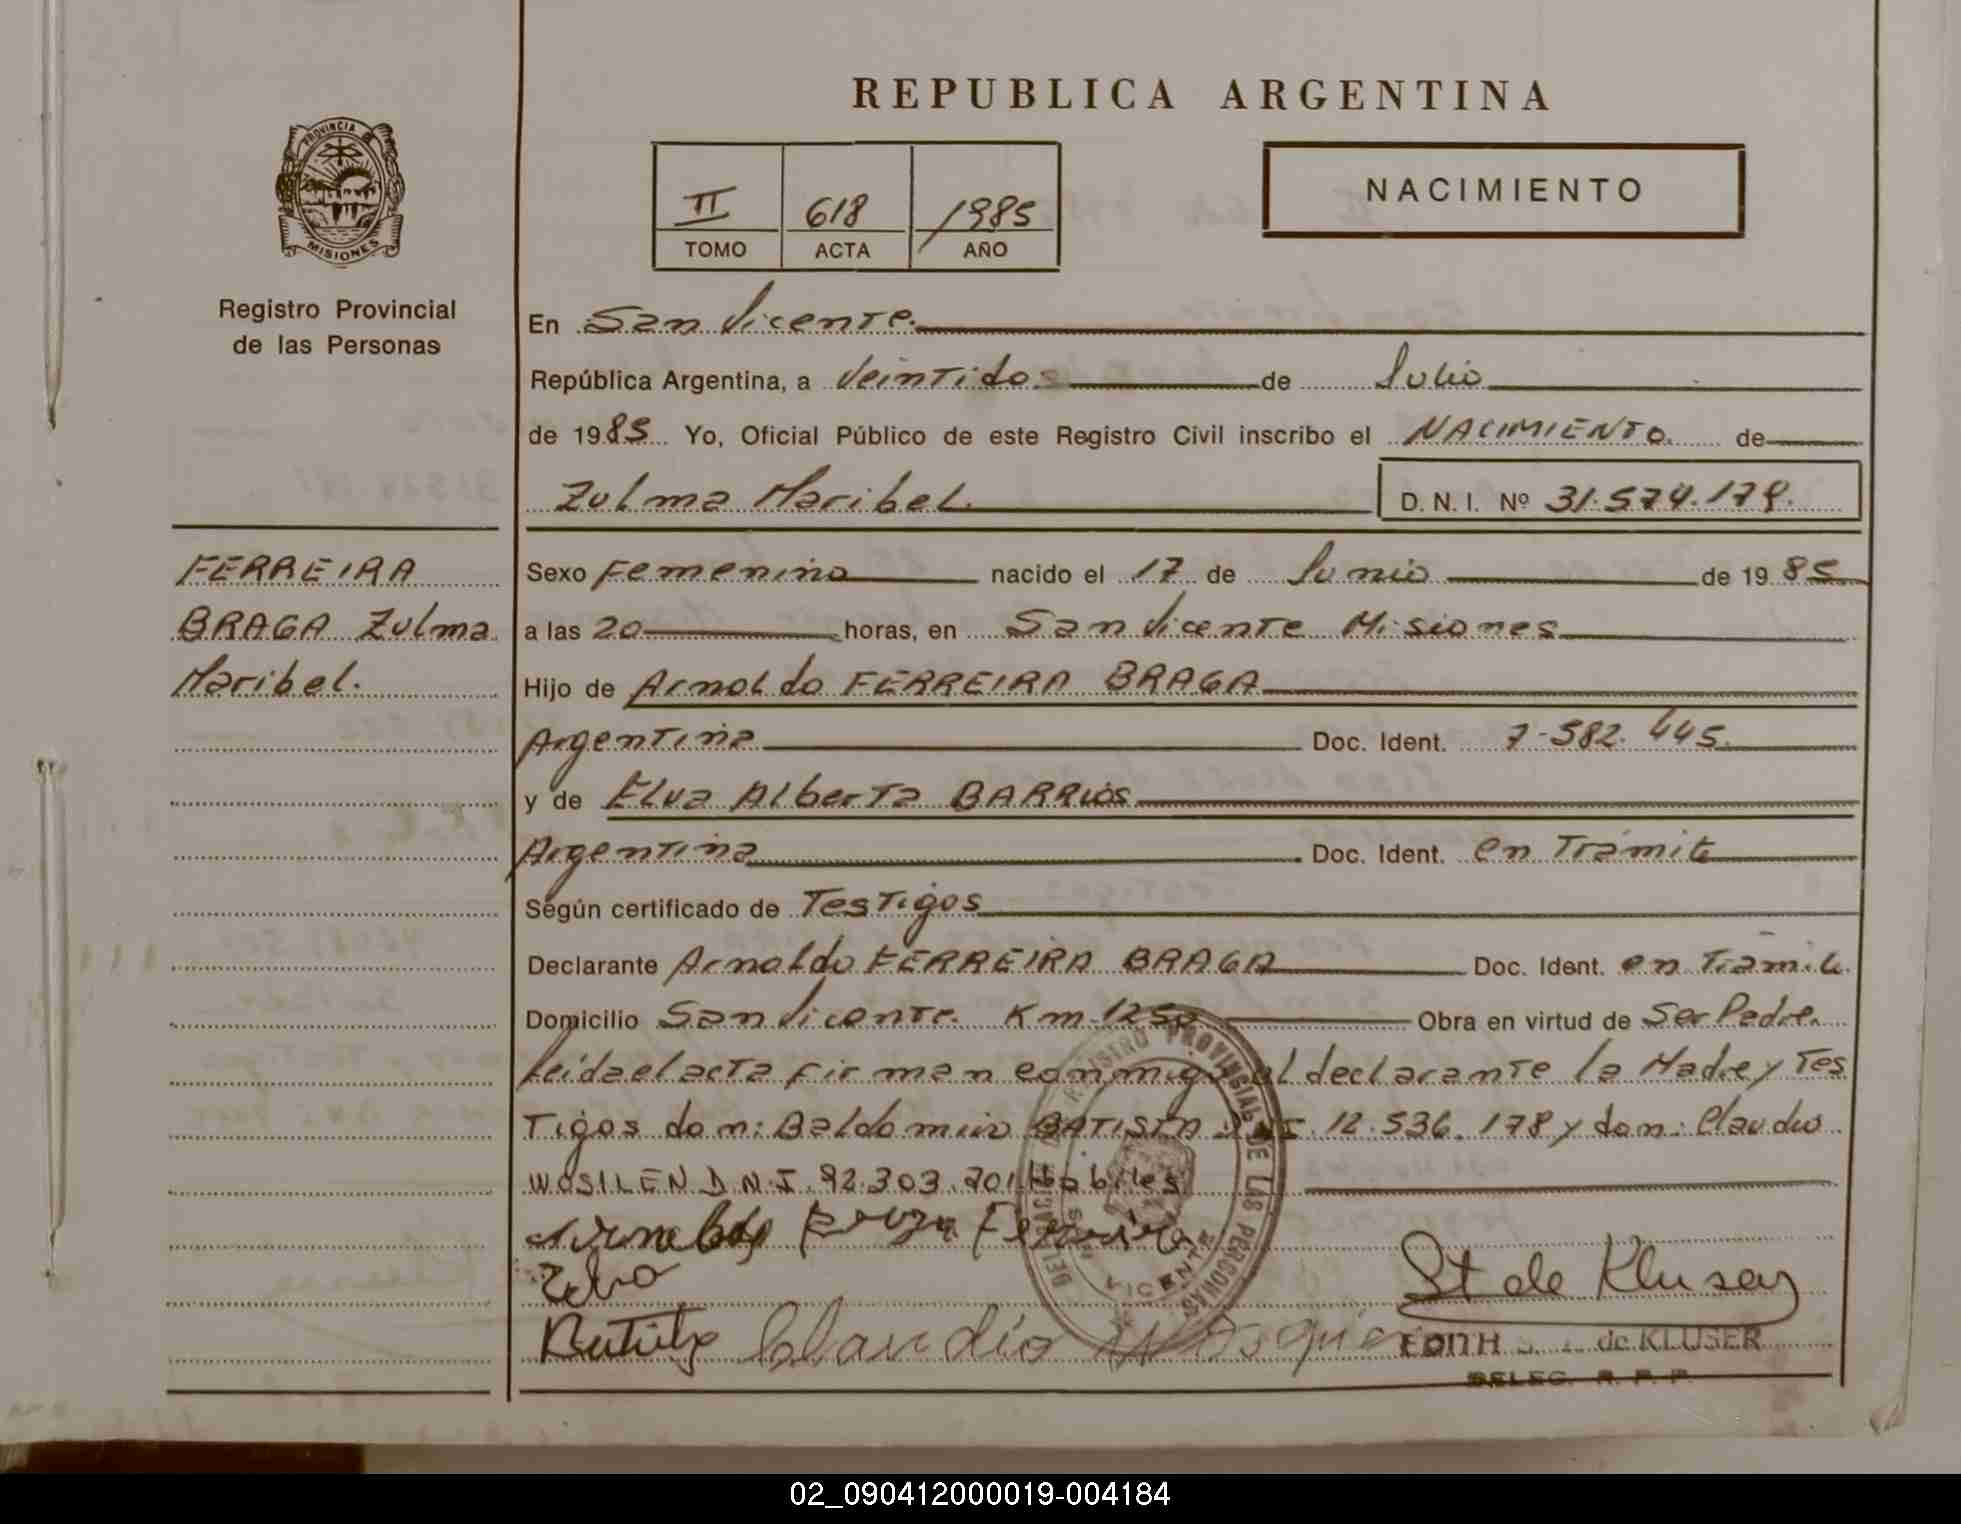 REPUBLICA ARGENTINA
PROVINCIA DE MISIONES
Registro Provincial
de las Personas
II 618 1985
TOMO ACTA AÑO
NACIMIENTO
En San Vicente.
República Argentina, a Veintidos de Julio
de 1985 Yo, Oficial Público de este Registro Civil inscribo el NACIMIENTO. de
Zulma Maribel. D. N. I. Nº 31.574.179.
FERREIRA
BRAGA Zulma
Maribel.
Sexo Femenino nacido el 17 de Junio de 1985
a las 20 horas, en San Vicente Misiones
Hijo de Arnoldo FERREIRA BRAGA
Argentina Doc. Ident. 7-582.445.
y de Elva Alberta BARRIOS
Argentina Doc. Ident. en Trámite
Según certificado de Testigos
Declarante Arnoldo FERREIRA BRAGA Doc. Ident. en Trámite.
Domicilio San Vicente. Km 1250 Obra en virtud de Ser Padre.
Leida el acta firman conmigo el declarante la Madre y Tes
Tigos don: Baldomiro BATISTA D.N.I. 12.536.178 y don: Claudio
WOSILEN D.N.I. 92.303.701 Habiles
REGISTRO PROVINCIAL DE LAS PERSONAS
VICENTE
Elva
St de Kluser
Claudio
EDITH de KLUSER
DELEG. R. P. P.
02_090412000019-004184